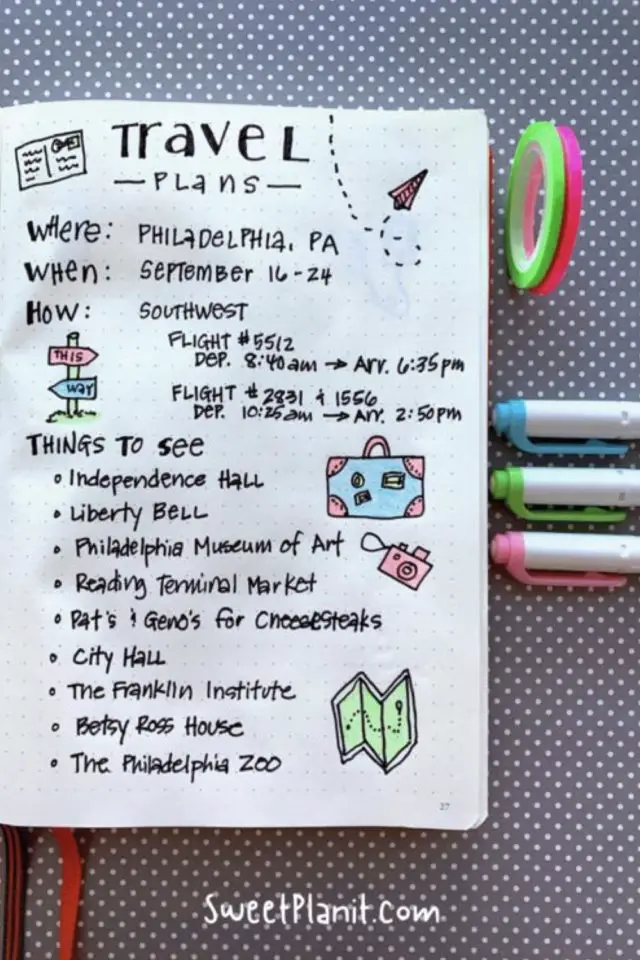 TRaveL
— PLans —
WHere: PHILADELPHIA, PA
WHen: SePTember 16-24
How: SOUTHWEST
FLIGHT #5512
Dep. 8:40am → Arr. 6:35pm
THIS
FLIGHT # 2831 & 1556
WAY
Dep. 10:25am → Arr. 2:50pm
THINGS TO See
• Independence Hall
• Liberty Bell
• Philadelphia Museum of Art
• Reading Terminal Market
• Pat's & Geno's for Cheesesteaks
• City Hall
• The Franklin Institute
• Betsy Ross House
• The Philadelphia Zoo
27
SweetPlanit.com